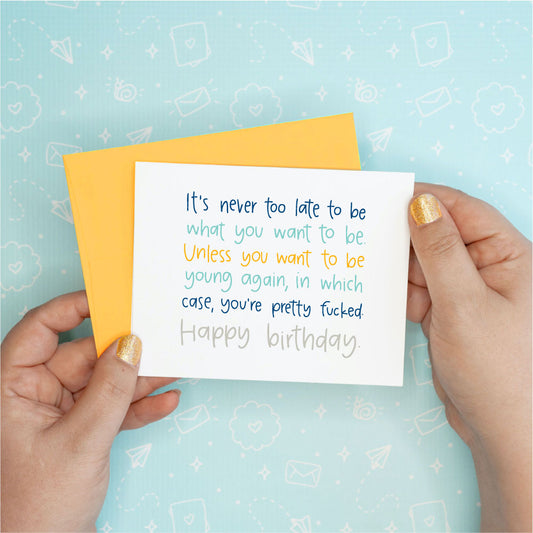 It's never too late to be
what you want to be.
Unless you want to be
young again, in which
case, you're pretty fucked.
Happy birthday.